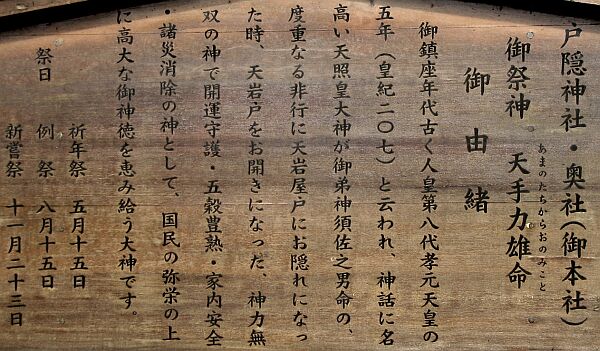 戸隠神社・奥社（御本社）
御祭神　天手力雄命
あまのたちからおのみこと
御由緒
御鎮座年代古く人皇第八代孝元天皇の
五年（皇紀二〇七）と云われ、神話に名
高い天照皇大神が御弟神須佐之男命の、
度重なる非行に天岩屋戸にお隠れになっ
た時、天岩戸をお開きになった、神力無
双の神で開運守護・五穀豊熟・家内安全
・諸災消除の神として、国民の弥栄の上
に高大な御神徳を恵み給う大神です。
祭日
祈年祭　五月十五日
例祭　八月十五日
新嘗祭　十一月二十三日